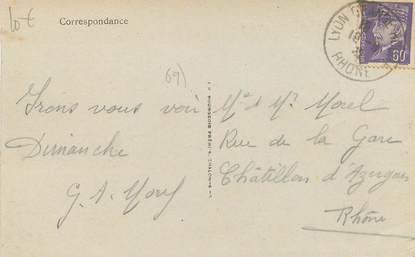 lot
Correspondance
69)
LYON
RHÔNE
60
Irons vous voir
Dimanche
G. A. Morel
Mr et Me Morel
Rue de la Gare
Châtillon d'Azergues
Rhône